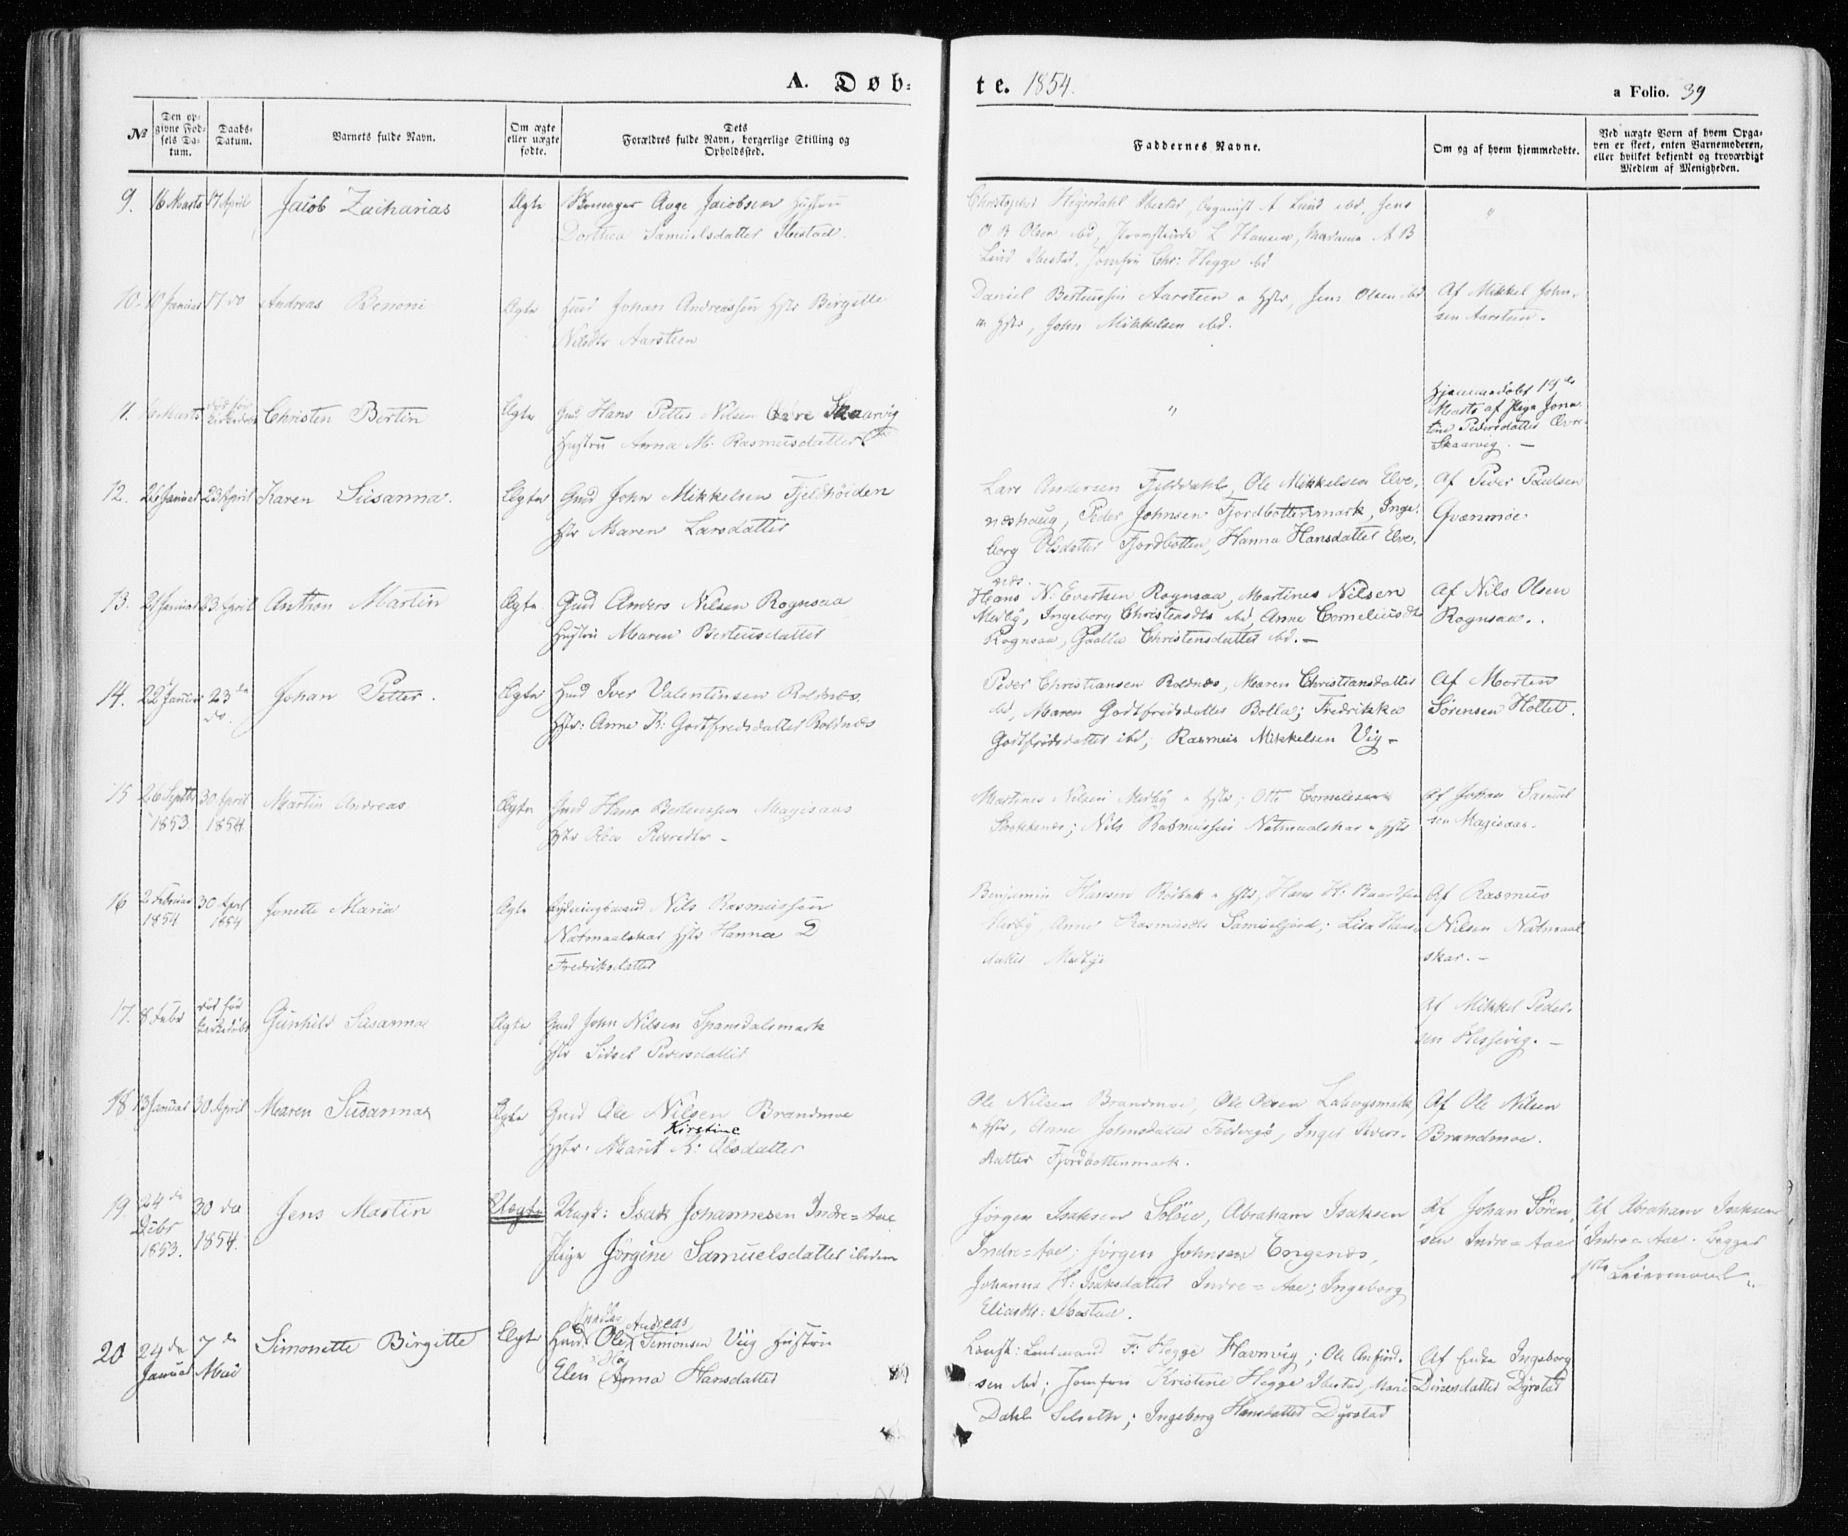 A. Døb-
te. 1854.
a Folio. 39
No
Den op-
givne Fød-
sels Da-
tum.
Daabs-
Datum.
Barnets fulde Navn.
Om ægte
eller uægte
fødte.
Dets
Forældres fulde Navn, borgerlige Stilling og
Opholdssted.
Faddernes Navne.
Om og af hvem hjemmedøbte.
Ved uægte Børn af hvem Opga-
ven er skeet, enten Barnemoderen,
eller hvilket bekjendt og troværdigt
Medlem af Menigheden.
9. 16 Marts 17 April Jacob Zacharias Ægte Aage Jacobsen Hustru
Dorthea Samuelsdatter Ibestad.
Christopher Heyerdahl Ibestad, Organist A Lund ibd, Jens
O B Olsen ibd, L Hansen, Madame A B
Lund Ibestad, Jomfru Chr: Hegge ibd
"
10. 10 Januar 17 do Andreas Benoni Ægte Huusm Johan Andreassen Hstr Birgitte
Nilsdtr Aarsteen
Daniel Berteussen Aarsteen o Hstr, Jens Olsen ibd
o Hstr, John Mikkelsen ibd.
Af Mikkel John-
sen Aarsteen.
11. Marts død før
Kirkedåb Christen Bertin Ægte Gmd Hans Petter Nilsen Øvre Skaarvig
Hustru Anna M. Rasmusdatter
"
Hjemmedøbt 19de
Marts af Pige Jona
tine Pedersdatter Øvre-
Skaarvig. —
12. 26 Januar 23 April Karen Susanna. Ægte Gmd John Mikkelsen Fjeldhøiden
Hstr Maren Larsdatter
Lars Andersen Fjelddahl, Ole Mikkelsen Elve-
næshaug, Peder Johnsen Fjordbottenmark, Inge-
borg Olsdatter Fjordbotten, Hanna Hansdatter Elve-
næs.
Af Peder Paulsen
Qvænmoe
13. 21 Januar 23 April Anthon Martin Ægte Gmd Anders Nilsen Rognsaa
Hustru Maren Berteusdatter
Hans N. Evertsen Rognsaa, Martines Nilsen
Meeby, Ingeborg Christensdtr ibd, Anne Corneliusdtr
Rognsaa, Christensdatter ibd. —
Af Nils Olsen
Rognsaa.
14. 22 Januar 23 de
do. Johan Petter. Ægte Huusm Iver Valentinsen Roldnæs.
Hstr: Anne K. Godtfredsdatter Roldnæs
Peder Christiansen Roldnæs, Maren Christiansdatter
ibd, Maren Godtfredsdatter Bolla; Fredrikke
Godtfredsdatter ibd; Rasmus Mikkelsen Vig —
Af Morten
Sørensen Hottet.
15 26 Septbr
1853. 30 April
1854. Martin Andreas Ægte Gmd Hans Berteussen Magisaas
Hstr Pedersdtr —
Martines Nilsen Meeby o Hstr; Otto Cornelissen
Stokkenæs; Nils Rasmussen Natmaalskar o Hstr
Af Johan Samuel
sen Magisaas.
16 2 Februar
1854 30 April
1854 Jonette Maria Ægte Rydningsmand Nils Rasmussen
Natmaalskar Hstr Hanna D
Fredriksdatter
Benjamin Hansen o Hstr, Hans H. Baardsen
Meeby, Anne Rasmusdtr; Lisa Hans-
datter Meebye
Af Rasmus
Nilsen Natmaal
skar. —
17. 8 Febr død før
Kirkedåb Gunhild Susanna Ægte Gmd John Nilsen Spansdalsmark
Hstr Sidsel Pedersdatter
Af Mikkel Peder-
sen. —
18 13 Januar 30 April Maren Susanna Ægte Gmd Ole Nilsen Brandmoe
Kirstine
Hstr. Marit K: Olsdatter
Ole Nilsen Brandmoe, Ole Olsen
o Hstr, Anne Johnsdatter, Inger Ivers-
datter Fjordbottenmark.
Af Ole Nilsen
Brandmoe.
19. 24de
Debr
1853. 30 de
1854. Jens Martin Uægte Ungk: Isak Johannesen Indre=Aae
Pige Jörgine Samuelsdatter ibidem
Jørgen Isaksen, Abraham Isaksen
Indre=Aae; Jørgen Johnsen Engenæs,
Johanna H: Isaksdatter Indre=Aae; Ingeborg
Eliasdtr: Ibestad.
Af Johan Sören-
sen Indre=Aae
Af Abraham Isaksen
Indre=Aae. Begges
1ste Leiermaal
20 24de
Januar 7de
Mai Simonette Birgitte Ægte Andreas
Huusm Ole Simonsen Viig Hustru
Elen Anna Hansdatter
Lensmand F. Hegge Havnvig; Ole Anfind-
sen ibd; Jomfru Kristine Hegge Ibestad, Marie
Dahl Selseth; Ingeborg Hansdatter Dyrstad
Af Enke Ingeborg
Dinesdatter Dyrstad